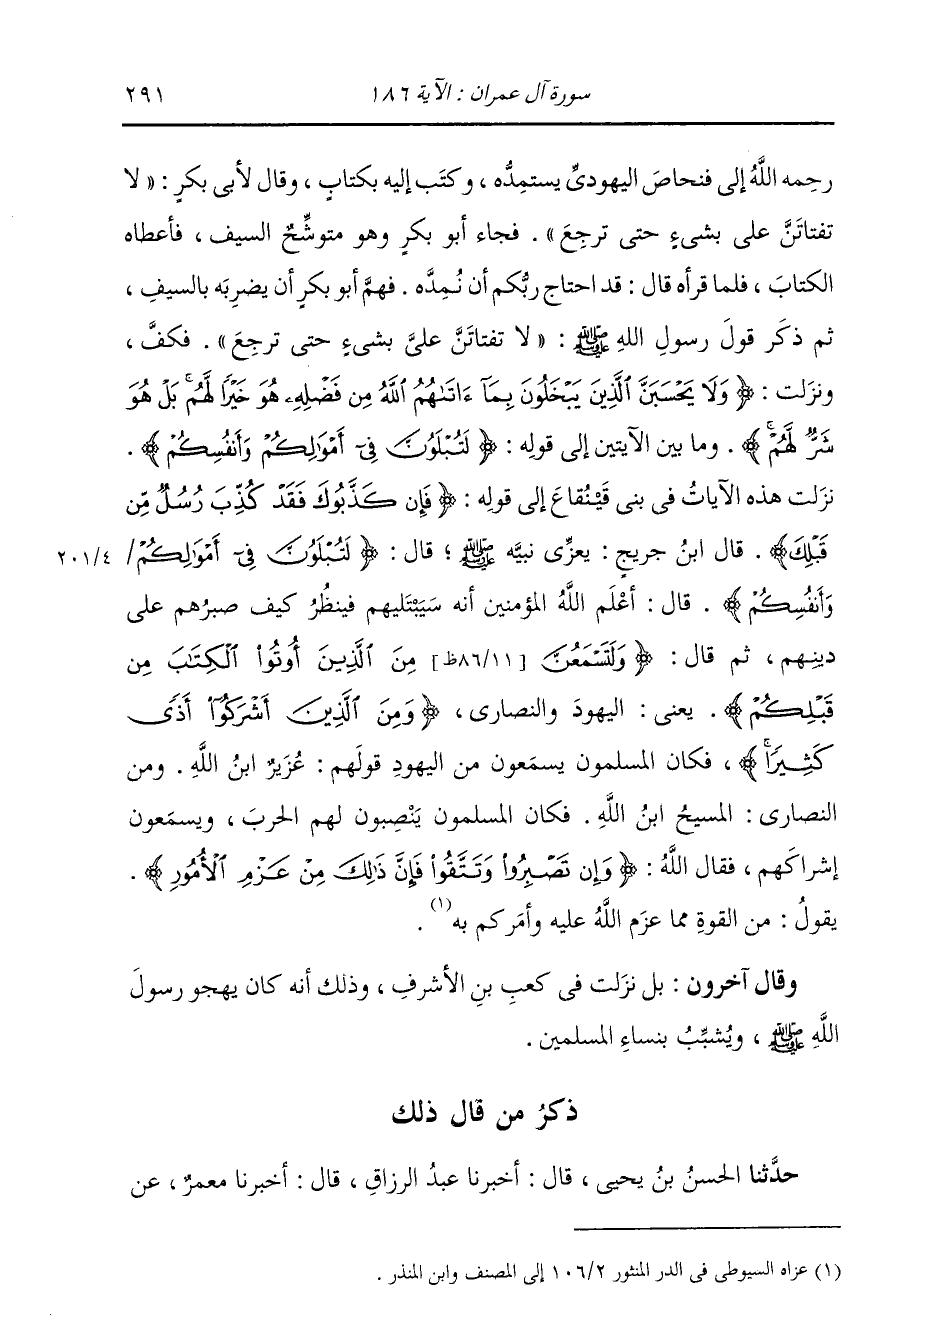 سورة آل عمران : الآية ١٨٦ ٢٩١
رحِمه اللَّهُ إلى فنحاصَ اليهودىِّ يستمِدُّه ، وكتَب إليه بكتابٍ ، وقال لأبى بكرٍ : « لا
تفتاتَنَّ على بشىءٍ حتى ترجِعَ » . فجاء أبو بكرٍ وهو متوشِّحٌ السيف ، فأعطاه
الكتابَ ، فلما قرأه قال : قد احتاج ربُّكم أن نُمِدَّه . فهمَّ أبو بكرٍ أن يضرِبَه بالسيفِ ،
ثم ذكَر قولَ رسولِ اللهِ ﷺ : « لا تفتاتَنَّ علىَّ بشىءٍ حتى ترجِعَ » . فكفَّ ،
ونزَلت : ﴿ وَلَا يَحْسَبَنَّ ٱلَّذِينَ يَبْخَلُونَ بِمَآ ءَاتَىٰهُمُ ٱللَّهُ مِن فَضْلِهِۦ هُوَ خَيْرًا لَّهُمۖ بَلْ هُوَ
شَرٌّ لَّهُمْۖ ﴾ . وما بين الآيتين إلى قولِه : ﴿ لَتُبْلَوُنَّ فِىٓ أَمْوَٰلِكُمْ وَأَنفُسِكُمْ ﴾ .
نزَلت هذه الآياتُ فى بنى قَيْنُقاعَ إلى قولِه : ﴿ فَإِن كَذَّبُوكَ فَقَدْ كُذِّبَ رُسُلٌ مِّن
قَبْلِكَ ﴾ . قال ابنُ جريجٍ : يعزِّى نبيَّه ﷺ ؛ قال : ﴿ لَتُبْلَوُنَّ فِىٓ أَمْوَٰلِكُمْ / ٢٠١/٤
وَأَنفُسِكُمْ ﴾ . قال : أعْلَم اللَّهُ المؤمنين أنه سَيَبْتَليهم فينظُرُ كيف صبرُهم على
دينِهم ، ثم قال : ﴿ وَلَتَسْمَعُنَّ [٨٦/١١ظ] مِنَ ٱلَّذِينَ أُوتُوا۟ ٱلْكِتَٰبَ مِن
قَبْلِكُمْ ﴾ . يعنى : اليهودَ والنصارى ، ﴿ وَمِنَ ٱلَّذِينَ أَشْرَكُوٓا۟ أَذًى
كَثِيرًاۚ ﴾ ، فكان المسلمون يسمَعون من اليهودِ قولَهم : عُزَيرٌ ابنُ اللَّهِ . ومن
النصارى : المسيحُ ابنُ اللَّهِ . فكان المسلمون يَنْصِبون لهم الحربَ ، ويسمَعون
إشراكَهم ، فقال اللَّهُ : ﴿ وَإِن تَصْبِرُوا۟ وَتَتَّقُوا۟ فَإِنَّ ذَٰلِكَ مِنْ عَزْمِ ٱلْأُمُورِ ﴾ .
يقولُ : من القوةِ مما عزَم اللَّهُ عليه وأمَركم به(١) .
وقال آخرون : بل نزَلت فى كعبِ بنِ الأشرفِ ، وذلك أنه كان يهجو رسولَ
اللَّهِ ﷺ ، ويُشبِّبُ بنساءِ المسلمين .
ذكرُ من قال ذلك
حدَّثنا الحسنُ بنُ يحيى ، قال : أخبرنا عبدُ الرزاقِ ، قال : أخبرنا معمرٌ ، عن
(١) عزاه السيوطى فى الدر المنثور ١٠٦/٢ إلى المصنف وابن المنذر .